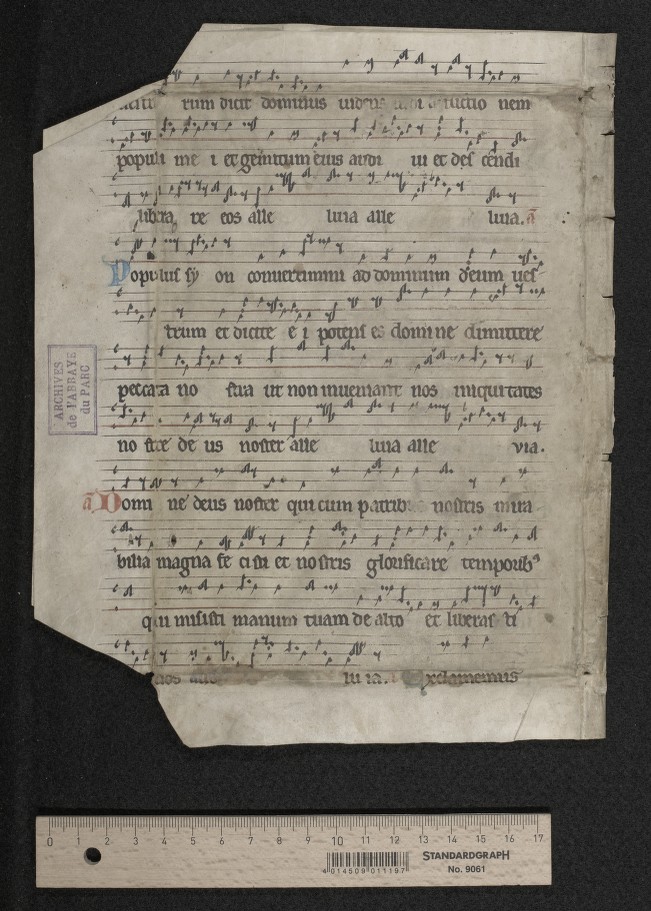 rum dicit dominus videns vidi afflictio nem
populi me i et gemitum eius audi ui et des cendi
libera re eos alle luia alle luia. a
Populus sy on convertimini ad dominum deum ues
trum et dicite e i potens es domine dimittere
peccata no stra ut non inueniant nos iniquitates
no stre de us noster alle luia alle via.
a Domi ne deus noster qui cum patribus nostris mira
bilia magna fe cisti et nostris glorificare temporib9
qui misisti manum tuam de alto et liberas ti
nos alle lu ia. Exclamemus
ARCHIVES
de l'ABBAYE
du PARC
0 1 2 3 4 5 6 7 8 9 10 11 12 13 14 15 16 17
4 014509 011197
STANDARDGRAPH
No. 9061